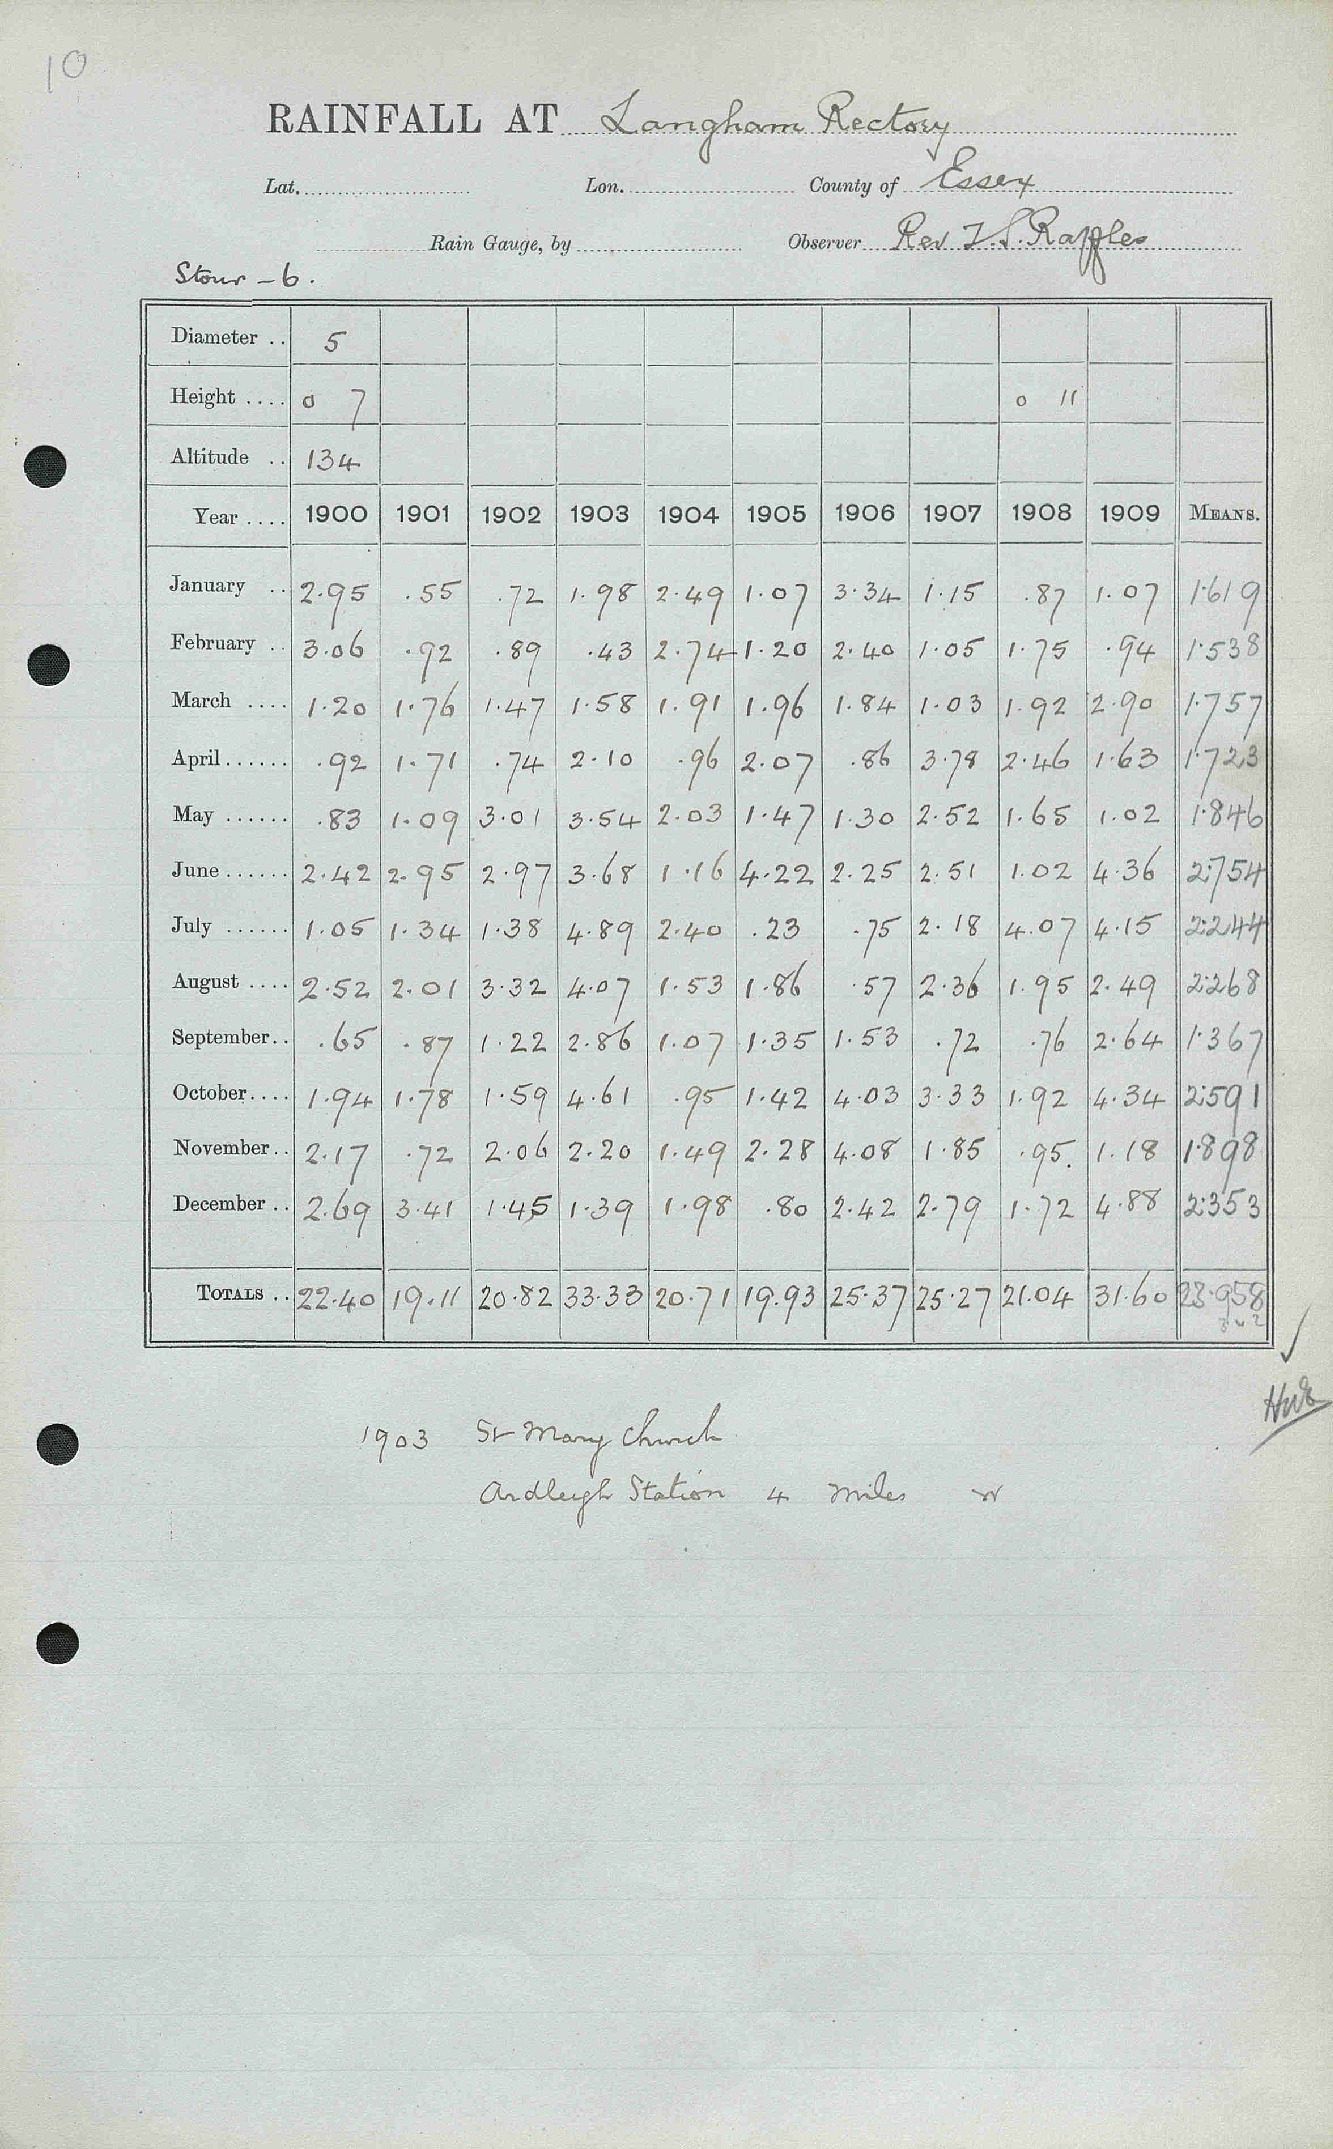 10
RAINFALL AT Langham Rectory
Lat. Lon. County of Essex
Rain Gauge, by Observer Rev T.S. Raffles
Stour - 6.
Diameter .. 5
Height .... 0 7 0 11
Altitude .. 134
Year .... 1900 1901 1902 1903 1904 1905 1906 1907 1908 1909 MEANS.
January .. 2.95 .55 .72 1.98 2.49 1.07 3.34 1.15 .87 1.07 1.619
February .. 3.06 .92 .89 .43 2.74 1.20 2.40 1.05 1.75 .94 1.538
March .... 1.20 1.76 1.47 1.58 1.91 1.96 1.84 1.03 1.92 2.90 1.757
April ...... .92 1.71 .74 2.10 .96 2.07 .86 3.78 2.46 1.63 1.723
May ...... .83 1.09 3.01 3.54 2.03 1.47 1.30 2.52 1.65 1.02 1.846
June ...... 2.42 2.95 2.97 3.68 1.16 4.22 2.25 2.51 1.02 4.36 2.754
July ...... 1.05 1.34 1.38 4.89 2.40 .23 .75 2.18 4.07 4.15 2.244
August .... 2.52 2.01 3.32 4.07 1.53 1.86 .57 2.36 1.95 2.49 2.268
September.. .65 .87 1.22 2.86 1.07 1.35 1.53 .72 .76 2.64 1.367
October.... 1.94 1.78 1.59 4.61 .95 1.42 4.03 3.33 1.92 4.34 2.591
November.. 2.17 .72 2.06 2.20 1.49 2.28 4.08 1.85 .95 1.18 1.898
December .. 2.69 3.41 1.45 1.39 1.98 .80 2.42 2.79 1.72 4.88 2.353
TOTALS .. 22.40 19.11 20.82 33.33 20.71 19.93 25.37 25.27 21.04 31.60 23.958
1903 St Mary Church
Ardleigh Station 4 miles W